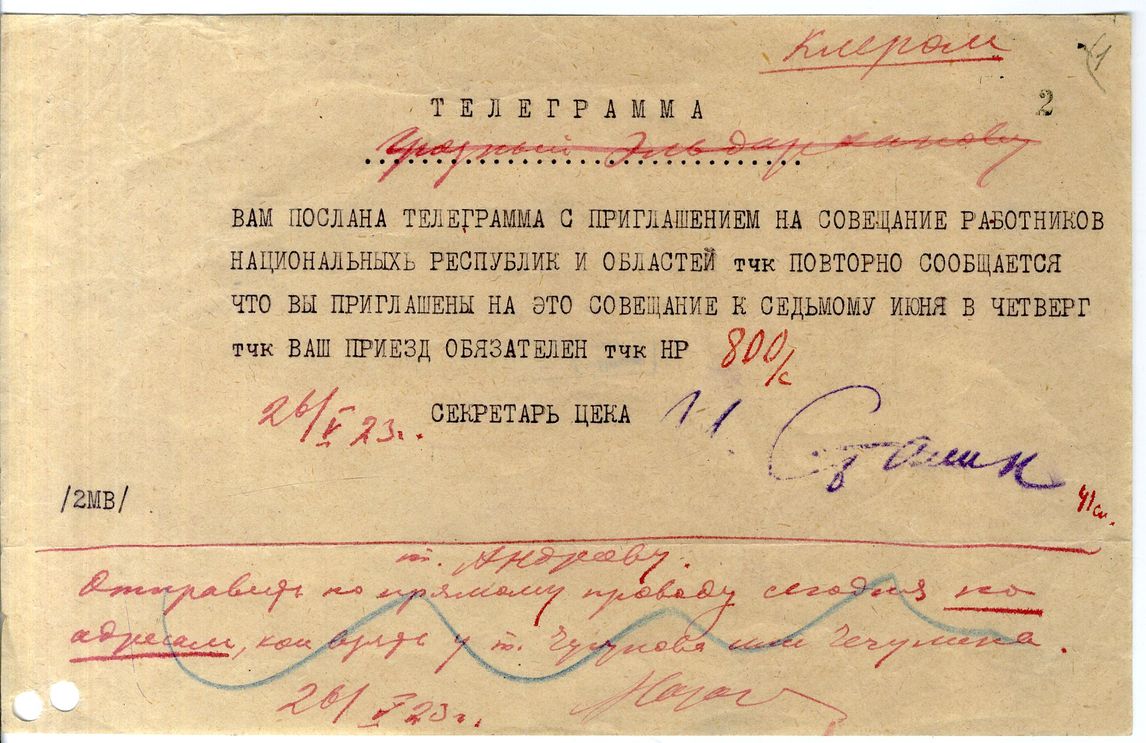 Клером
4
ТЕЛЕГРАММА
2
Грозный Эльдарханову
ВАМ ПОСЛАНА ТЕЛЕГРАММА С ПРИГЛАШЕНИЕМ НА СОВЕЩАНИЕ РАБОТНИКОВ
НАЦИОНАЛЬНЫХЬ РЕСПУБЛИК И ОБЛАСТЕЙ тчк ПОВТОРНО СООБЩАЕТСЯ
ЧТО ВЫ ПРИГЛАШЕНЫ НА ЭТО СОВЕЩАНИЕ К СЕДЬМОМУ ИЮНЯ В ЧЕТВЕРГ
тчк ВАШ ПРИЕЗД ОБЯЗАТЕЛЕН тчк НР 800/с
26/V 23г. СЕКРЕТАРЬ ЦЕКА И. Сталин
/2МВ/
т. Андрееву.
Отправить по прямому проводу сегодня по
адресам, кои взять у т. или Чечулина.
26/V 23г.